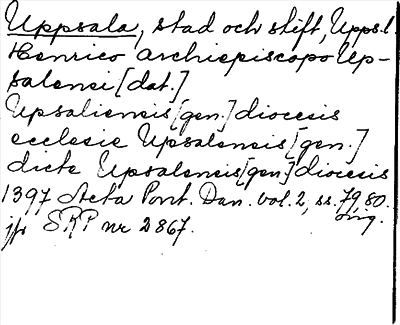 Uppsala, stad och stift, Uppsl.
Henrico archiepiscopo Up-
salensi [dat.]
Upsaliensis [gen.] diocesis
ecclesie Upsalensis [gen.]
dicte Upsalensis [gen.] diocesis
1397 Acta Pont. Dan. vol. 2, ss. 79, 80.
orig.
jfr SRP nr 2867.